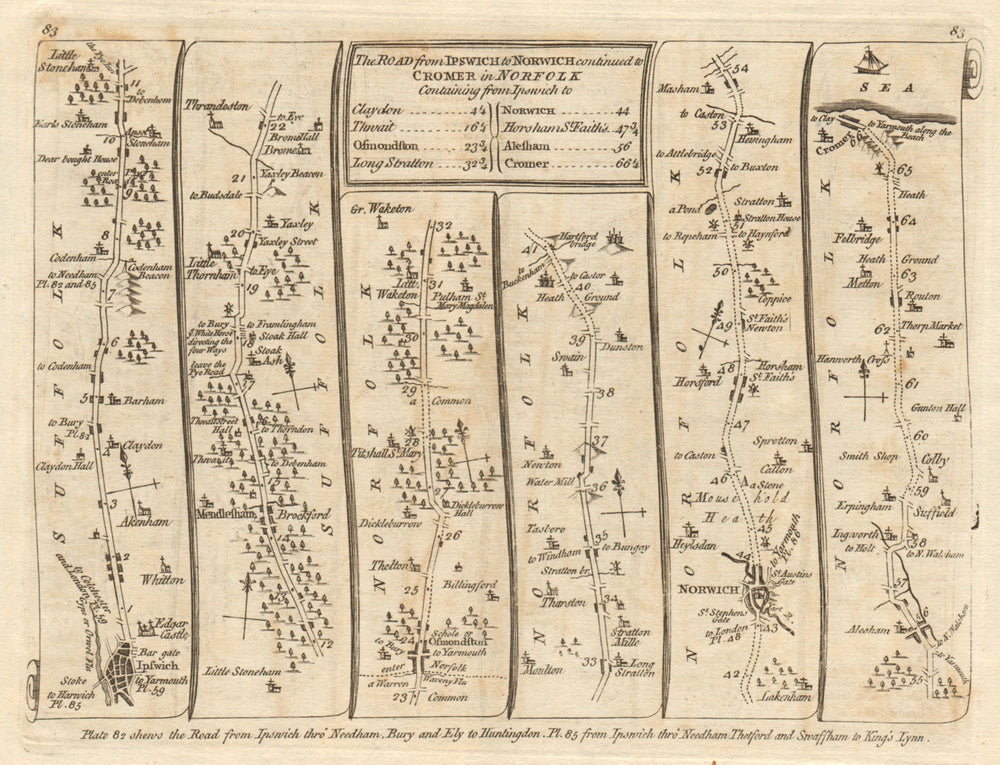 83
83
The ROAD from IPSWICH to NORWICH continued to
CROMER in NORFOLK
Containing from Ipswich to
Claydon 4¼
Thwait 16¼
Osmondston 23¾
Long Stratton 32¾
NORWICH 44
Horsham St. Faith's 47¾
Alesham 56
Cromer 66¼
Little
Stoneham
11
to
Debenham
Earls Stoneham
10
Dear bought House
enter
9
8
Codenham
to Needham
Pl. 82 and 85
Codenham
Beacon
7
6
to Codenham
5
Barham
to Bury
Pl. 82
Claydon
Claydon Hall
3
Akenham
2
to Colchester
and London
Pl. 59
Whitton
Edgar
Castle
Bar gate
Ipswich
Stoke
to Harwich
Pl. 85
to Yarmouth
Pl. 59
SUFFOLK
Thrandeston
to Eye
22
Bromehall
Brome
21
Yaxley Beacon
to Budsdale
Yaxley
20
Yaxley Street
Little
Thornham
to Eye
19
to Bury
a White Horse
directing the
four Ways
leave the
Pye Road
to Framlingham
18
Stoak Hall
Stoak
Ash
17
Thwaitstreet
Hall
to Thorndon
Thwait
to Debenham
15
Mendlesham
Brockford
14
13
12
Little Stoneham
SUFFOLK
Gr. Waketon
32
Litt.
Waketon
31
Pulham St.
Mary Magdalen
30
29
a Common
28
Titshall St. Mary
27
Dickleburrow
Hall
Dickleburrow
26
Thelton
25
Billingford
Schole or
Osmondston
24
to Bury
to Yarmouth
enter Norfolk
a Warren
Waveny Flu.
23
Common
NORFOLK
41
Hartford
bridge
to
Buckenham
to Castor
40
Heath
Ground
39
Dunston
Swain
38
37
Newton
Water Mill
36
Tasboro
35
to Windham
to Bungay
Stratton br.
Tharston
34
Stratton
Mille
Moulton
33
Long
Stratton
NORFOLK
54
Masham
to Caston
53
Hevingham
to Attlebridge
52
to Buxton
Stratton
a Pond
Stratton House
51
to Repeham
to Haynford
50
Coppice
St. Faith's
Newton
49
48
Horsham
St. Faith's
Horsford
47
Spretton
to Caston
46
Catton
a Stone
Mousehold
Heath
45
Heylsdan
44
to Yarmouth
Pl. 86
St. Austins
Gate
NORWICH
St. Stephens
Gate
to London
Pl. 48
43
42
Lakenham
NORFOLK
SEA
to Clay
Cromer
66
to Yarmouth along the
Beach
65
Heath
64
Felbridge
Heath
Ground
63
Metton
Routon
62
Thorp Market
Hanworth Cross
61
Gunton Hall
60
Smith Shop
Colby
59
Erpingham
Suffield
Ingworth
58
to Holt
to N. Walsham
57
56
Alesham
to N. Walsham
to Yarmouth
55
NORFOLK
Plate 82 shews the Road from Ipswich thro' Needham, Bury and Ely to Huntingdon. Pl. 85 from Ipswich thro' Needham Thetford and Swaffham to King's Lynn.